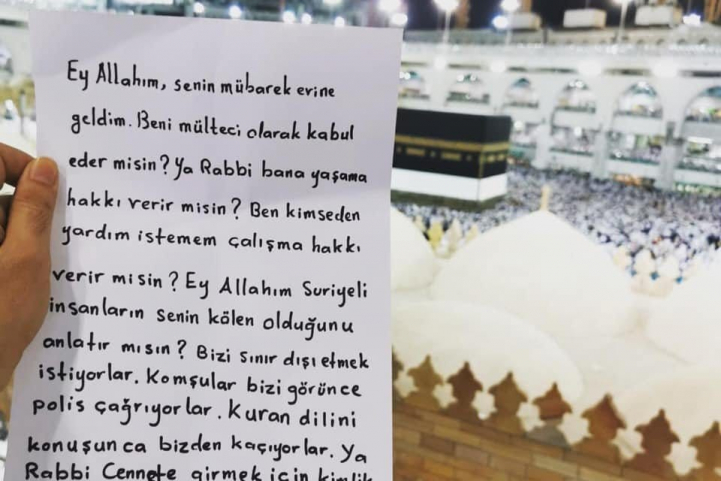 Ey Allahım, senin mübarek evine
geldim. Beni mülteci olarak kabul
eder misin? Ya Rabbi bana yaşama
hakkı verir misin? Ben kimseden
yardım istemem çalışma hakkı
verir misin? Ey Allahım Suriyeli
insanların senin kölen olduğunu
anlatır mısın? Bizi sınır dışı etmek
istiyorlar. Komşular bizi görünce
polis çağrıyorlar. Kuran dilini
konuşunca bizden kaçıyorlar. Ya
Rabbi Cennete girmek için kimlik